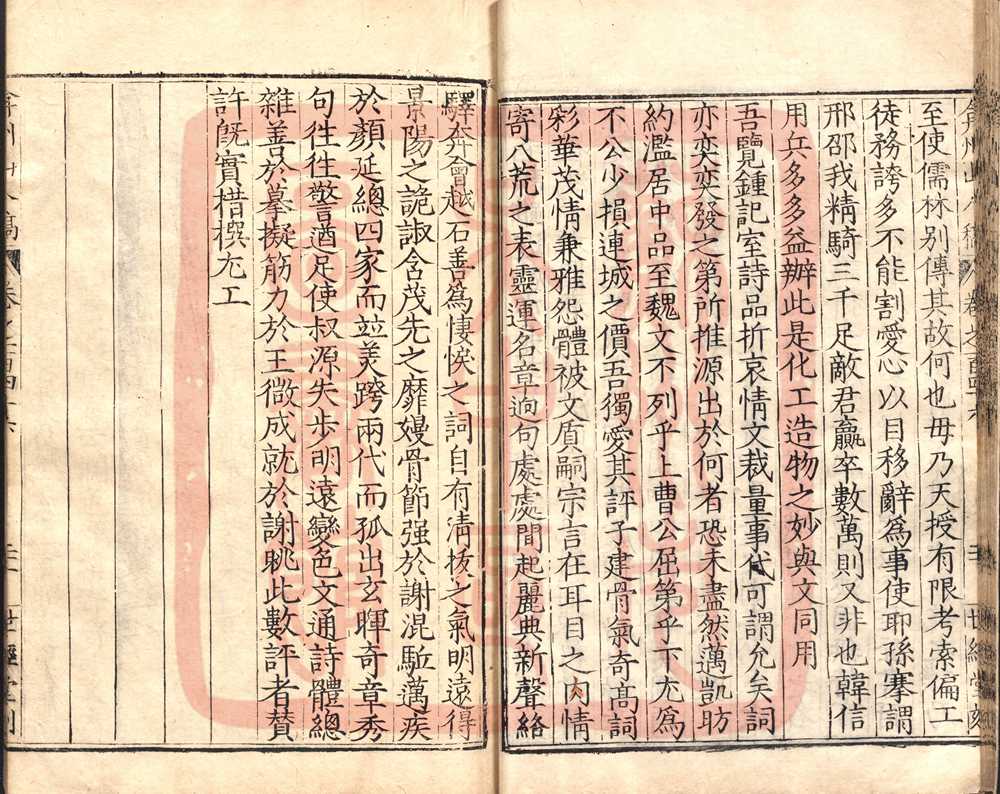 弇州山人稿 卷之一百四十六 世經堂刻
至使儒林別傳其故何也毋乃天授有限考索偏工
徒務誇多不能割愛心以目移辭爲事使耶孫搴謂
邢邵我精騎三千足敵君羸卒數萬則又非也韓信
用兵多多益辦此是化工造物之妙與文同用
吾覽鍾記室詩品折衷情文裁量事代可謂允矣詞
亦奕奕發之第所推源出於何者恐未盡然邁凱昉
約濫居中品至魏文不列乎上曹公屈第乎下尤爲
不公少損連城之價吾獨愛其評子建骨氣奇高詞
彩華茂情兼雅怨體被文質嗣宗言在耳目之内情
寄八荒之表靈運名章迥句處處間起麗典新聲絡
驛奔會越石善爲悽悷之詞自有清拔之氣明遠得
景陽之詭諔含茂先之靡嫚骨節强於謝混駈邁疾
於顏延總四家而並羙跨兩代而孤出玄暉奇章秀
句往往警遒足使叔源失步明遠變色文通詩體總
雜善於摹擬筋力於王微成就於謝眺此數評者贊
許旣實措撰尤工